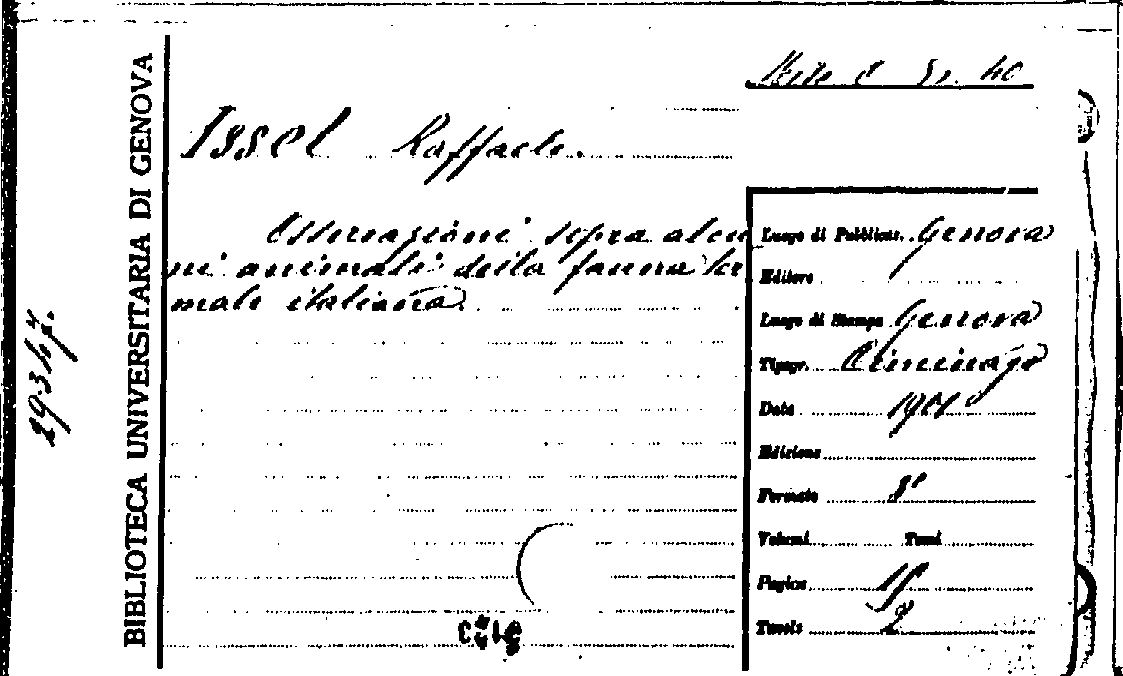 BIBLIOTECA UNIVERSITARIA DI GENOVA
Issel Raffaele.
Osservazioni sopra alcu
ni animali della fauna ter
male italiana
Luogo di Pubblicaz. Genova
Editore
Luogo di Stampa Genova
Tipogr. Ciminago
Data 1901
Edizione
Formato 8°
Volumi Tomi
Pagine
Tavole 2